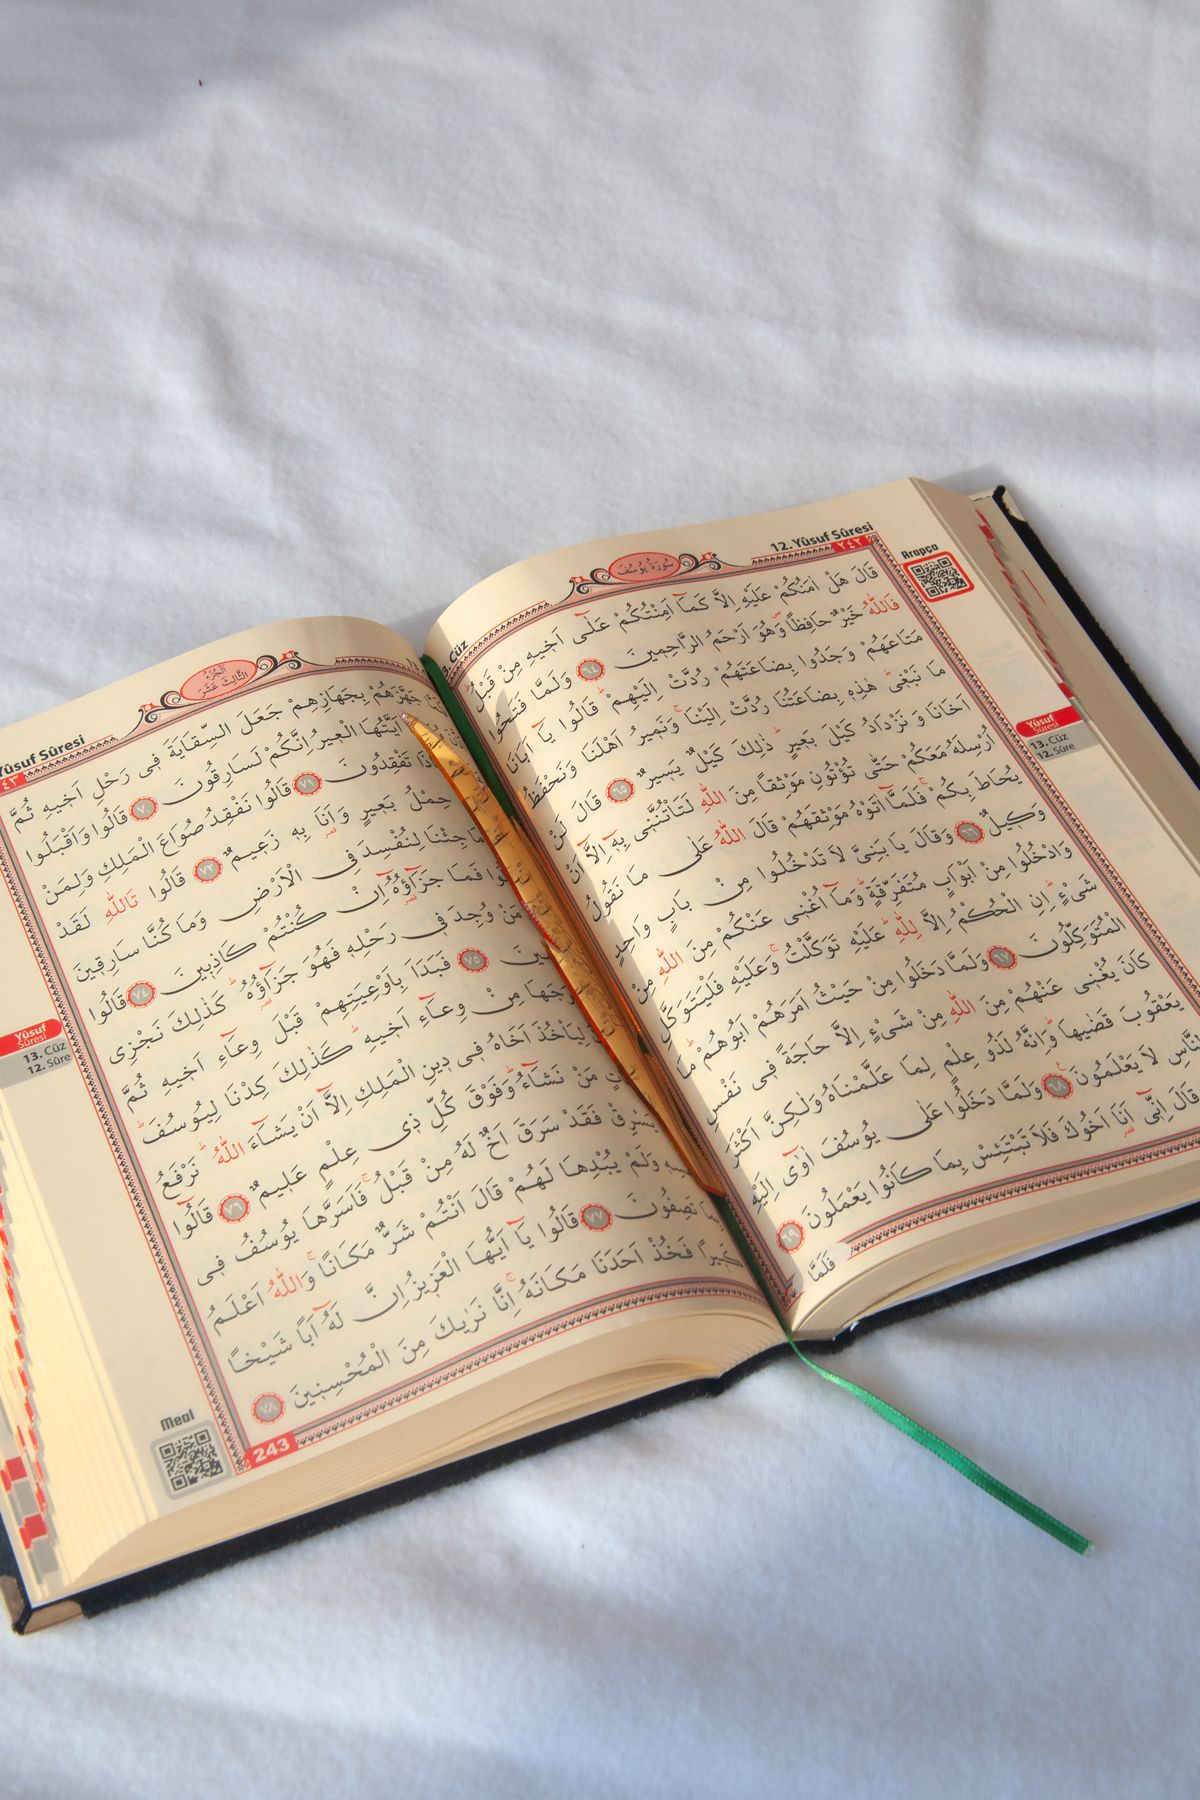 12. Yûsuf Sûresi
٢٤٢
سُورَةُ يُوسُفَ
Cüz
Arapça
قَالَ هَلْ اٰمَنُكُمْ عَلَيْهِ اِلَّا كَمَٓا اَمِنْتُكُمْ عَلٰٓى اَخ۪يهِ مِنْ قَبْلُۜ
فَاللّٰهُ خَيْرٌ حَافِظاًۖ وَهُوَ اَرْحَمُ الرَّاحِم۪ينَ ﴿٦٤﴾ وَلَمَّا فَتَحُوا
مَتَاعَهُمْ وَجَدُوا بِضَاعَتَهُمْ رُدَّتْ اِلَيْهِمْۜ قَالُوا يَٓا اَبَانَا
مَا نَبْغ۪يۜ هٰذِه۪ بِضَاعَتُنَا رُدَّتْ اِلَيْنَاۚ وَنَم۪يرُ اَهْلَنَا وَنَحْفَظُ
اَخَانَا وَنَزْدَادُ كَيْلَ بَع۪يرٍۜ ذٰلِكَ كَيْلٌ يَس۪يرٌ ﴿٦٥﴾ قَالَ لَنْ
اُرْسِلَهُ مَعَكُمْ حَتّٰى تُؤْتُونِ مَوْثِقاً مِنَ اللّٰهِ لَتَأْتُنَّن۪ي بِه۪ٓ اِلَّٓا اَنْ
يُحَاطَ بِكُمْۚ فَلَمَّٓا اٰتَوْهُ مَوْثِقَهُمْ قَالَ اللّٰهُ عَلٰى مَا نَقُولُ
وَك۪يلٌ ﴿٦٦﴾ وَقَالَ يَا بَنِيَّ لَا تَدْخُلُوا مِنْ بَابٍ وَاحِدٍ
وَادْخُلُوا مِنْ اَبْوَابٍ مُتَفَرِّقَةٍۜ وَمَٓا اُغْن۪ي عَنْكُمْ مِنَ اللّٰهِ مِنْ
شَيْءٍۜ اِنِ الْحُكْمُ اِلَّا لِلّٰهِۜ عَلَيْهِ تَوَكَّلْتُۚ وَعَلَيْهِ فَلْيَتَوَكَّلِ
الْمُتَوَكِّلُونَ ﴿٦٧﴾ وَلَمَّا دَخَلُوا مِنْ حَيْثُ اَمَرَهُمْ اَبُوهُمْۜ مَا
كَانَ يُغْن۪ي عَنْهُمْ مِنَ اللّٰهِ مِنْ شَيْءٍ اِلَّا حَاجَةً ف۪ي نَفْسِ
يَعْقُوبَ قَضٰيهَاۜ وَاِنَّهُ لَذُو عِلْمٍ لِمَا عَلَّمْنَاهُ وَلٰكِنَّ اَكْثَرَ
النَّاسِ لَا يَعْلَمُونَ۟ ﴿٦٨﴾ وَلَمَّا دَخَلُوا عَلٰى يُوسُفَ اٰوٰٓى اِلَيْهِ
قَالَ اِنّ۪ٓي اَنَا۬ اَخُوكَ فَلَا تَبْتَئِسْ بِمَا كَانُوا يَعْمَلُونَ ﴿٦٩﴾
فَلَمَّا
Yûsuf
Sûresi
13. Cüz
12. Sûre
اَلْجُزْءُ
الثَّالِثَ عَشَرَ
Yûsuf Sûresi
جَهَّزَهُمْ بِجَهَازِهِمْ جَعَلَ السِّقَايَةَ ف۪ي رَحْلِ اَخ۪يهِ ثُمَّ
اَيَّتُهَا الْع۪يرُ اِنَّكُمْ لَسَارِقُونَ ﴿٧٠﴾ قَالُوا وَاَقْبَلُوا
تَفْقِدُونَ ﴿٧١﴾ قَالُوا نَفْقِدُ صُوَاعَ الْمَلِكِ وَلِمَنْ
حِمْلُ بَع۪يرٍ وَاَنَا۬ بِه۪ زَع۪يمٌ ﴿٧٢﴾ قَالُوا تَاللّٰهِ لَقَدْ
جِئْنَا لِنُفْسِدَ فِي الْاَرْضِ وَمَا كُنَّا سَارِق۪ينَ
فَمَا جَزَٓاؤُ۬هُٓ اِنْ كُنْتُمْ كَاذِب۪ينَ ﴿٧٤﴾ قَالُوا
مَنْ وُجِدَ ف۪ي رَحْلِه۪ فَهُوَ جَزَٓاؤُ۬هُۜ كَذٰلِكَ نَجْزِي
﴿٧٥﴾ فَبَدَاَ بِاَوْعِيَتِهِمْ قَبْلَ وِعَٓاءِ اَخ۪يهِ ثُمَّ
مِنْ وِعَٓاءِ اَخ۪يهِۜ كَذٰلِكَ كِدْنَا لِيُوسُفَۜ
لِيَأْخُذَ اَخَاهُ ف۪ي د۪ينِ الْمَلِكِ اِلَّٓا اَنْ يَشَٓاءَ اللّٰهُۜ نَرْفَعُ
مَنْ نَشَٓاءُۜ وَفَوْقَ كُلِّ ذ۪ي عِلْمٍ عَل۪يمٌ ﴿٧٦﴾ قَالُٓوا
يَسْرِقْ فَقَدْ سَرَقَ اَخٌ لَهُ مِنْ قَبْلُۚ فَاَسَرَّهَا يُوسُفُ ف۪ي
وَلَمْ يُبْدِهَا لَهُمْۚ قَالَ اَنْتُمْ شَرٌّ مَكَاناًۚ وَاللّٰهُ اَعْلَمُ
تَصِفُونَ ﴿٧٧﴾ قَالُوا يَٓا اَيُّهَا الْعَز۪يزُ اِنَّ لَهُٓ اَباً شَيْخاً
كَب۪يراً فَخُذْ اَحَدَنَا مَكَانَهُۚ اِنَّا نَرٰيكَ مِنَ الْمُحْسِن۪ينَ ﴿٧٨﴾
Yûsuf
Sûresi
13. Cüz
12. Sûre
Meal
243